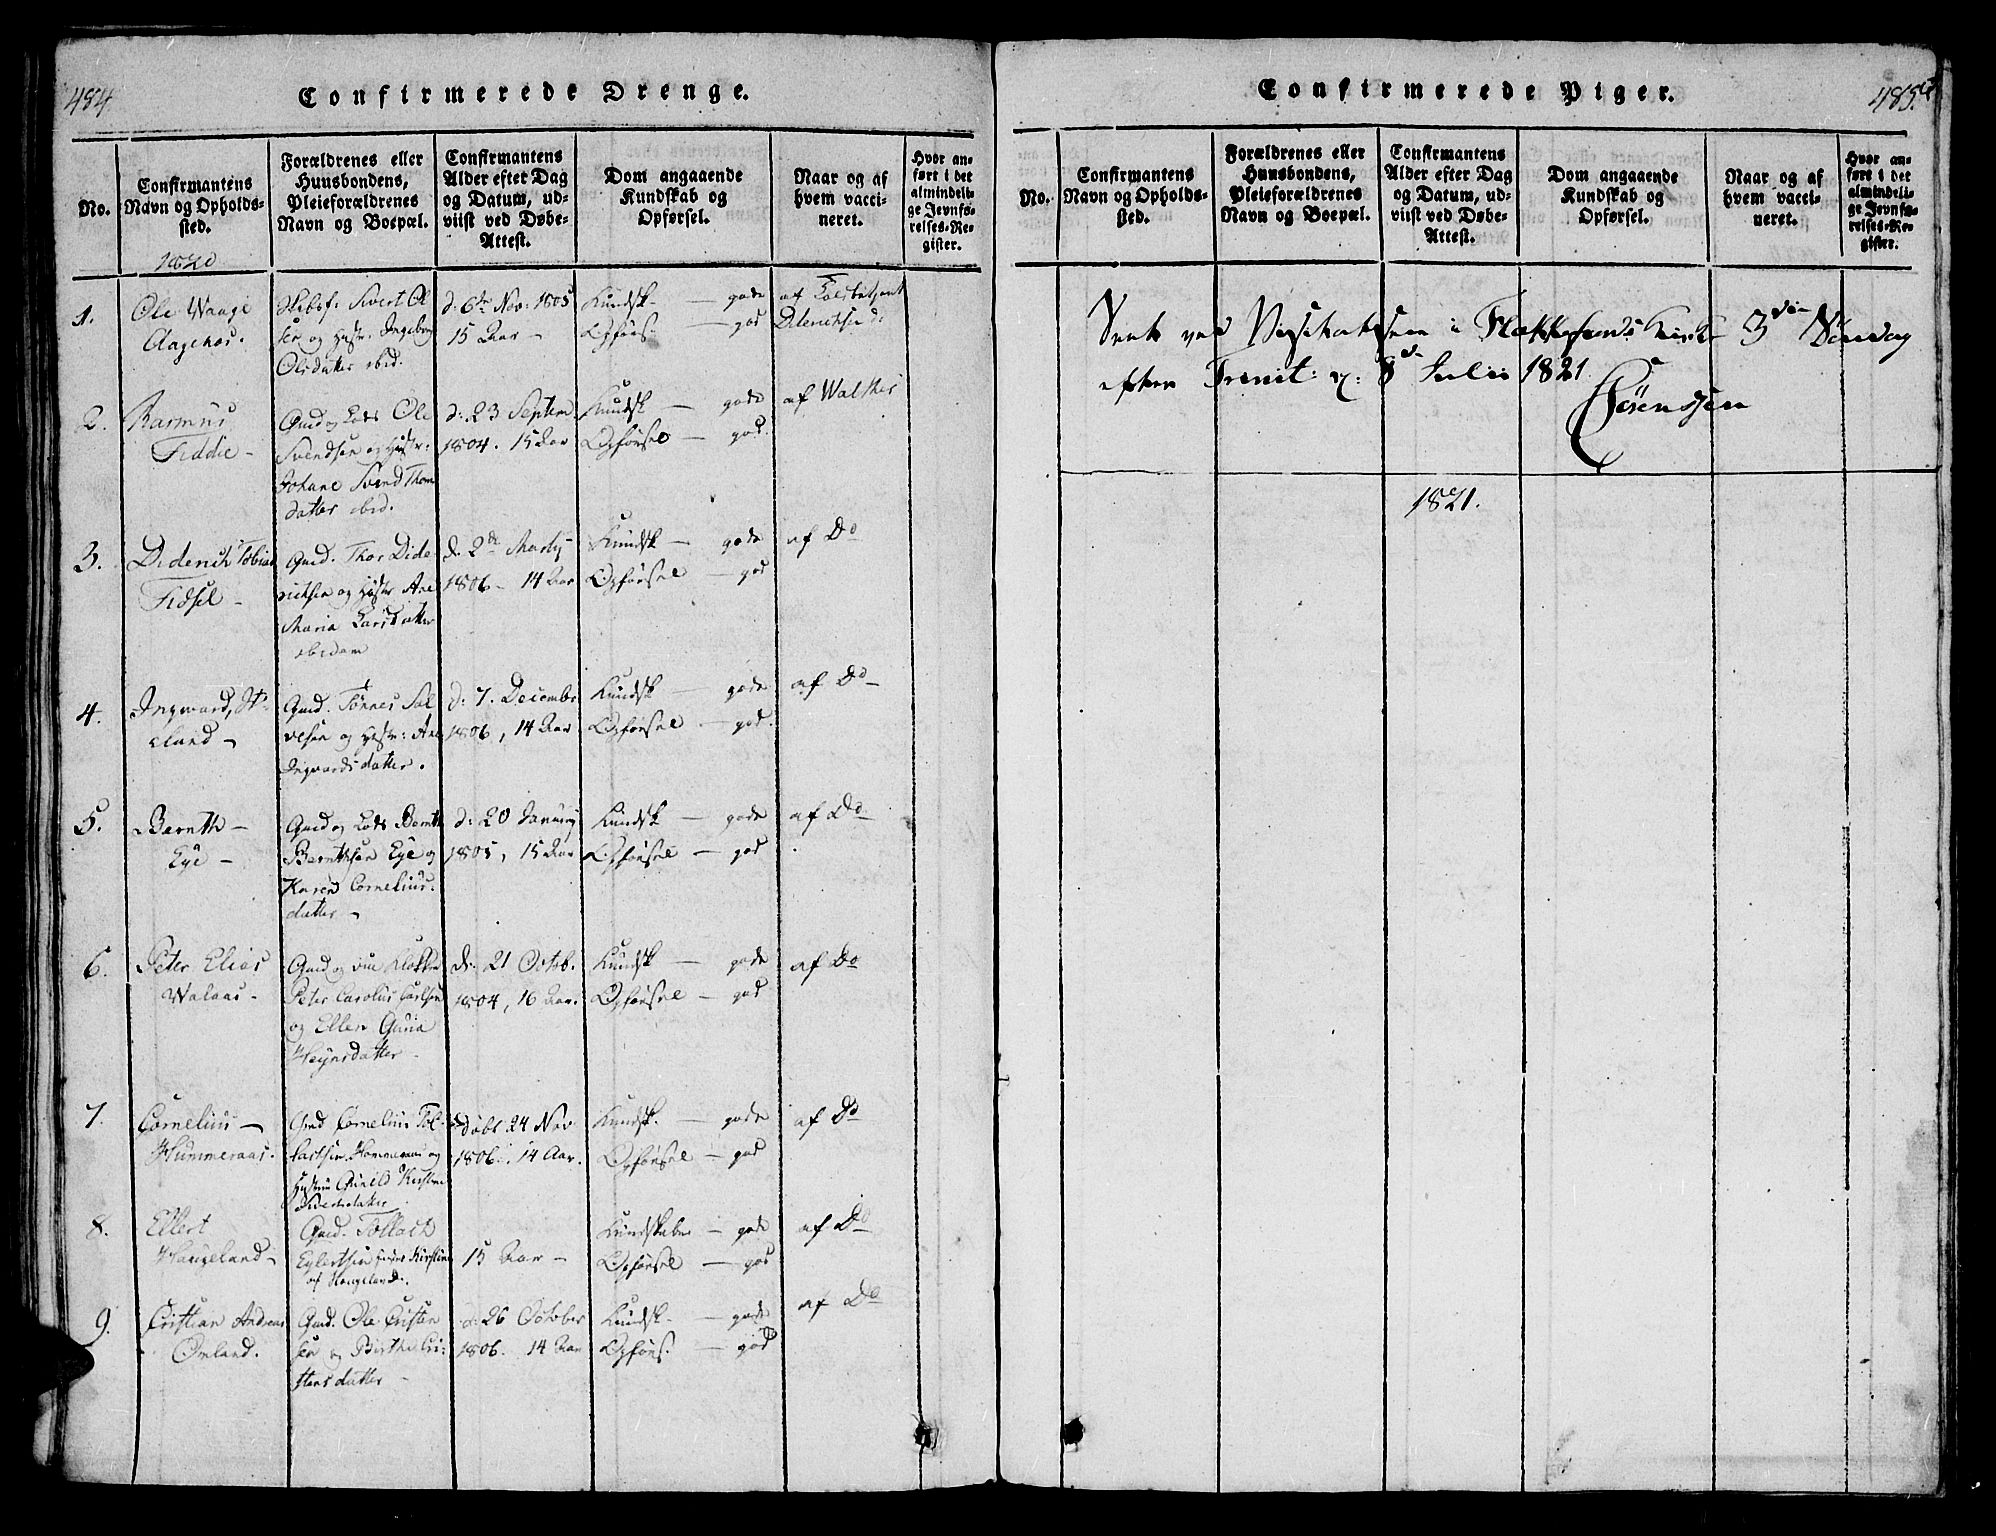 484
Confirmerede Drenge.
No.
Confirmantens Navn og Opholds-sted.
Forældrenes eller Huusbondens, Pleieforældrenes Navn og Boepæl.
Confirmantens Alder efter Dag og Datum, ud-viist ved Døbe-Attest.
Dom angaaende Kundskab og Opførsel.
Naar og af hvem vacci-neret.
Hvor an-ført i det almindeli-ge Jevnfø-relses-Re-gister.
1820
1.
Ole Waage
Aagehos.
Sivert Ol
sen og Hustr. Ingeborg
Olsdatter ibid.
d. 6te Nov: 1805
15 Aar —
Kundsk. — gode
Opførs: — god
af
Dideriksen
2.
Rasmus
Fiddie —
Gmd og Lods Ole
Svendsen og Hustr:
Johane Svend Thom
datter ibid.
d: 23 Septem.
1804. 15 Aar
Kundsk — gode
Opførsel — god.
af Walther
3.
Diderich Tobias
Fidsel —
Gmd. Thor Dide
richsen og Hustr Ane
Maria Larsdatter
ibidem
d. 2de Martij
1806 — 14 Aar
Kundsk — gode
Opførsel — god
af Do
4.
Ingward,
eland —
Gmd. Tønnes Sal
vesen og Hustr: Ane
Ingwardsdatter.
d: 7. Decembr
1806, 14 Aar
Kundsk — gode
Opførsel — god.
af Do —
5.
Bernth —
Eye —
Gmd og Lods Bernth
Bernthsen Eye og
Karen Cornelius
datter —
d: 20 Januarij
1805, 15 Aar
Kundsk — gode
Opførsel — god
af Do
6.
Peter Elias
Walaas —
Gmd og Klokker
Peter Carolus Carlsen
og Ellen Guria
Heynsdatter —
d: 21 Octob.
1804, 16 Aar.
Kundsk — gode
Opførsel — god
af Do
7.
Cornelius —
Hummeraas.
Gmd Cornelius Tol-
lachsen Hommeraas og
Hustrue Gunild Kirstine
Sivertsdatter
døbt 24 Nov
1806. 14 Aar.
Kundsk. — gode
Opførsel — god
af Do
8.
Ellert
Haugeland —
Gmd. Tollach
Eylertsen Kirstine
af Haugeland.
15 Aar —
Kundskaber — gode
Opførsel — god
af Do
9.
Cristian Andreas
Omland.
Gmd. Ole Cristen
sen og Birthe Cri-
stensdatter —
d: 26 October
1806. 14 Aar
Kundsk. — gode
Opførs: — god
af Do
Confirmerede Piger.
485.
No.
Confirmantens Navn og Opholds-sted.
Forældrenes eller Huusbondens, Pleieforældrenes Navn og Boepæl.
Confirmantens Alder efter Dag og Datum, ud-viist ved Døbe-Attest.
Dom angaaende Kundskab og Opførsel.
Naar og af hvem vacci-neret.
Hvor an-ført i det almindeli-ge Jevnfø-relses-Re-gister.
Seet ved Visitatsen i Flekkefiords Kirke 3die Søndag
efter Trinit: d: 8d Julii 1821
Sørenssen
1821.